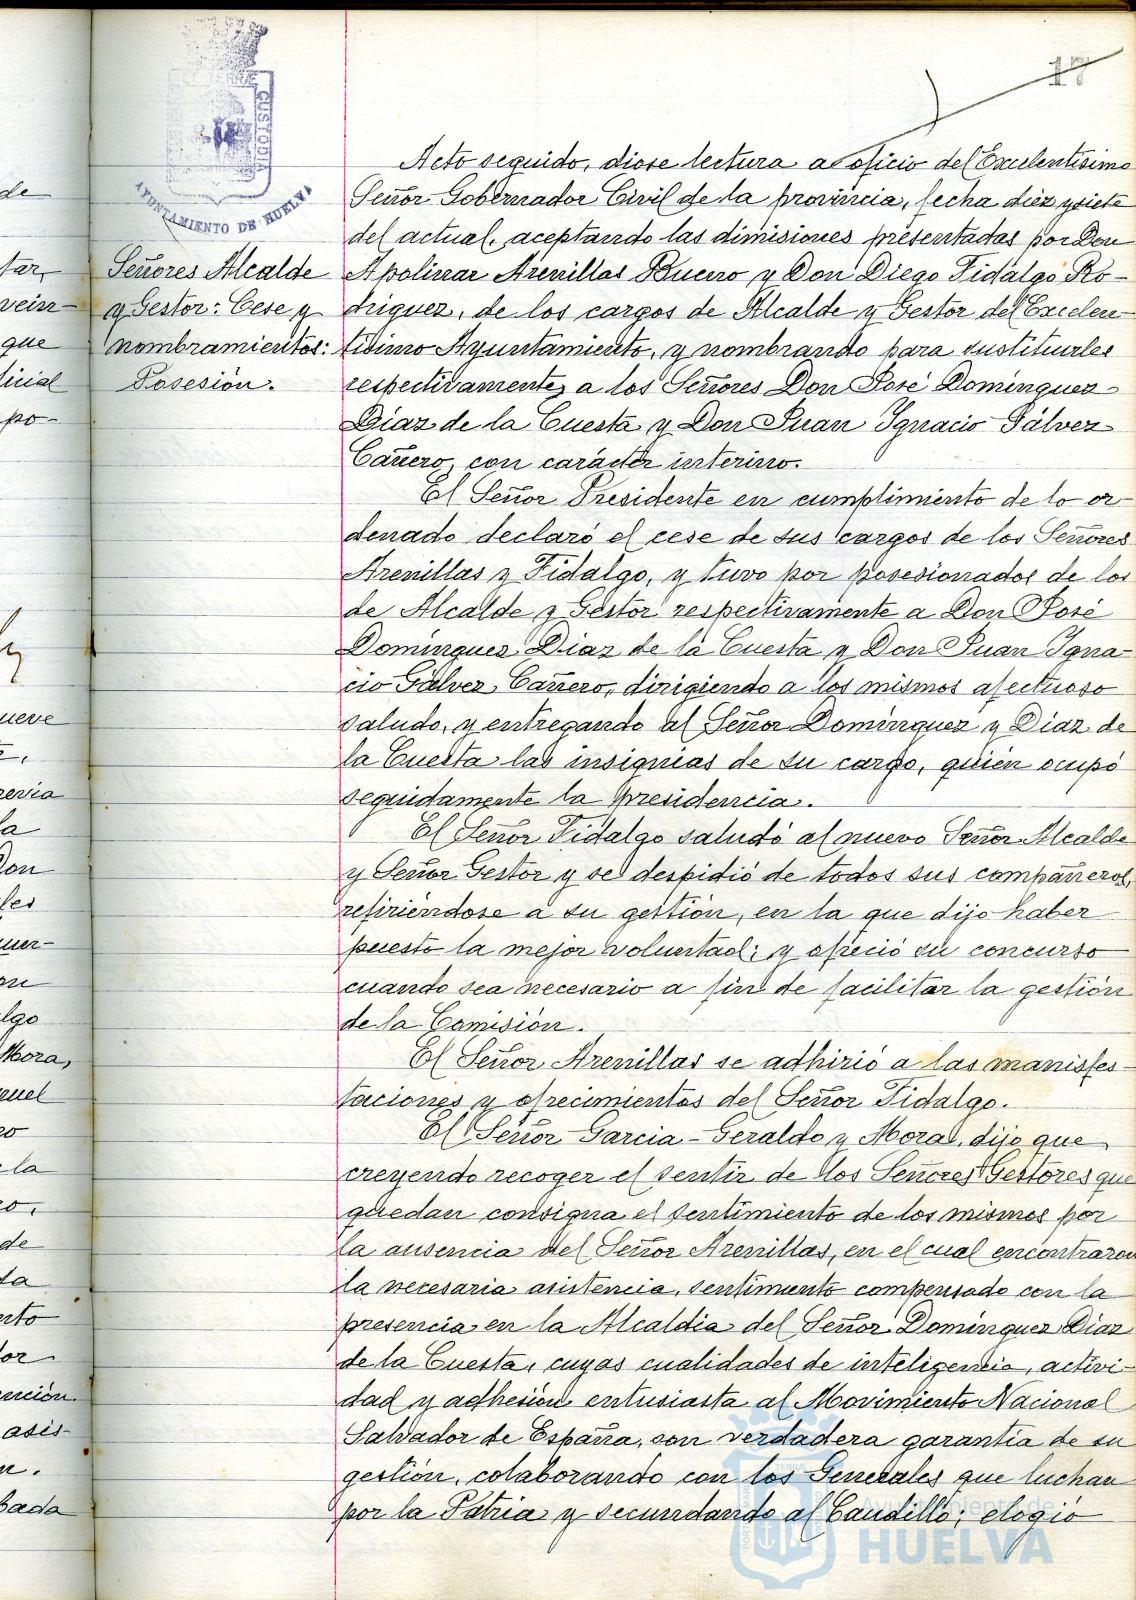 17
CUSTODIA
AYUNTAMIENTO DE HUELVA
Señores Alcalde
y Gestor: Cese y
nombramientos:
Posesión.
Acto seguido, diose lectura a oficio del Excelentísimo
Señor Gobernador Civil de la provincia, fecha diez y siete
del actual, aceptando las dimisiones presentadas por Don
Apolinar Arenillas Bueno y Don Diego Fidalgo Ro-
driguez, de los cargos de Alcalde y Gestor del Excelen-
tisimo Ayuntamiento, y nombrando para sustituirles
respectivamente, a los Señores Don José Domínguez
Diaz de la Cuesta y Don Juan Ignacio Gálvez
Cañero, con carácter interino.
El Señor Presidente en cumplimiento de lo or-
denado declaró el cese de sus cargos de los Señores
Arenillas y Fidalgo, y tuvo por posesionados de los
de Alcalde y Gestor respectivamente a Don José
Domínguez Diaz de la Cuesta y Don Juan Igna-
cio Gálvez Cañero, dirigiendo a los mismos afectuoso
saludo, y entregando al Señor Domínguez y Diaz de
la Cuesta las insignias de su cargo, quién ocupó
seguidamente la presidencia.
El Señor Fidalgo saludó al nuevo Señor Alcalde
y Señor Gestor y se despidió de todos sus compañeros,
refiriéndose a su gestión, en la que dijo haber
puesto la mejor voluntad; y ofreció su concurso
cuando sea necesario a fin de facilitar la gestión
de la Comisión.
El Señor Arenillas se adhirió a las manisfes-
taciones y ofrecimientos del Señor Fidalgo.
El Señor Garcia-Geraldo y Mora, dijo que
creyendo recoger el sentir de los Señores Gestores que
quedan consigna el sentimiento de los mismos por
la ausencia del Señor Arenillas, en el cual encontraron
la necesaria asistencia, sentimiento compensado con la
presencia en la Alcaldia del Señor Domínguez Diaz
de la Cuesta, cuyas cualidades de inteligencia, activi-
dad y adhesión entusiasta al Movimiento Nacional
Salvador de España, son verdadera garantía de su
gestión, colaborando con los Generales que luchan
por la Patria y secundando al Caudillo; elogió
Ayuntamiento de
HUELVA